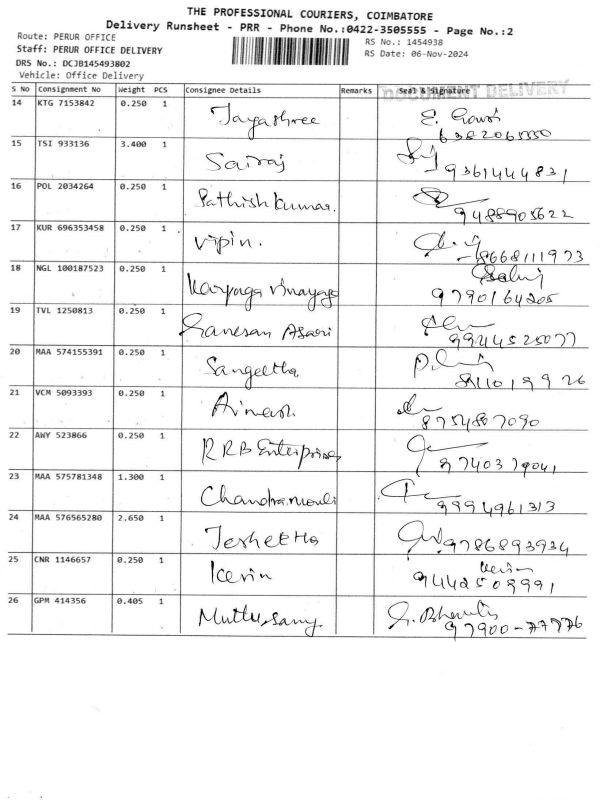 THE PROFESSIONAL COURIERS, COIMBATORE
Delivery Runsheet - PRR - Phone No.:0422-3505555 - Page No.:2
Route: PERUR OFFICE
RS No.: 1454938
Staff: PERUR OFFICE DELIVERY
RS Date: 06-Nov-2024
DRS No.: DCJB145493802
Vehicle: Office Delivery
DOCUMENT DELIVERY
S No Consignment No Weight PCS Consignee Details Remarks Seal & Signature
14 KTG 7153842 0.250 1
Jayashree E. Gowri
15 TSI 933136 3.400 1
Sairaj 9361444831
16 POL 2034264 0.250 1
Sathishkumar.
9488905622
17 KUR 696353458 0.250 1
Vipin. 8668111973
18 NGL 100187523 0.250 1
Karpaga Vinayaga 9790164205
19 TVL 1250813 0.250 1
Ganesan Asari 9944525077
20 MAA 574155391 0.250 1
Sangeetha
21 VCM 5093393 0.250 1
Avinash 8754807090
22 AWY 523866 0.250 1
RRB Enterprises 9740379041
23 MAA 575781348 1.300 1
Chandramouli 9994961313
24 MAA 576565280 2.650 1
9786893934
25 CNR 1146657 0.250 1
Kevin Kevin
9442509991
26 GPM 414356 0.405 1
Muthusamy
97900-77776